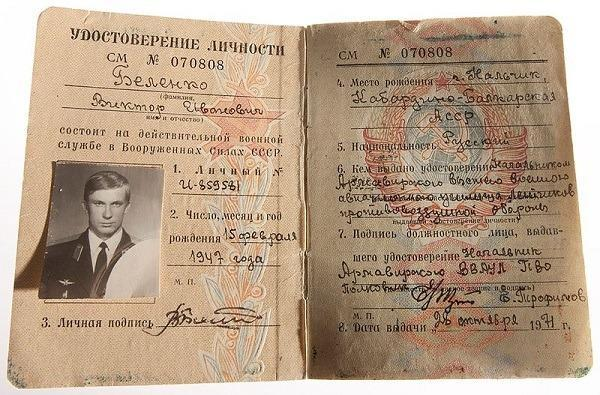 УДОСТОВЕРЕНИЕ ЛИЧНОСТИ
СМ № 070808
Беленко
(фамилия,
Виктор Иванович
имя и отчество)
состоит на действительной военной
службе в Вооруженных Силах СССР.
1. Личный №
И-859581
2. Число, месяц и год
рождения 15 февраля
1947 года
М. П.
3. Личная подпись
СМ № 070808
4. Место рождения г. Нальчик,
Кабардино-Балкарская
АССР
5. Национальность Русский
6. Кем выдано удостоверение Начальником
Армавирского высшего военного
авиационного училища лётчиков
противовоздушной обороны
7. Подпись должностного лица, выдав-
шего удостоверение Начальник
Армавирского ВВАУЛ ПВО
Полковник Е. Трофимов
М. П.
8. Дата выдачи „26 октября 1971 г.